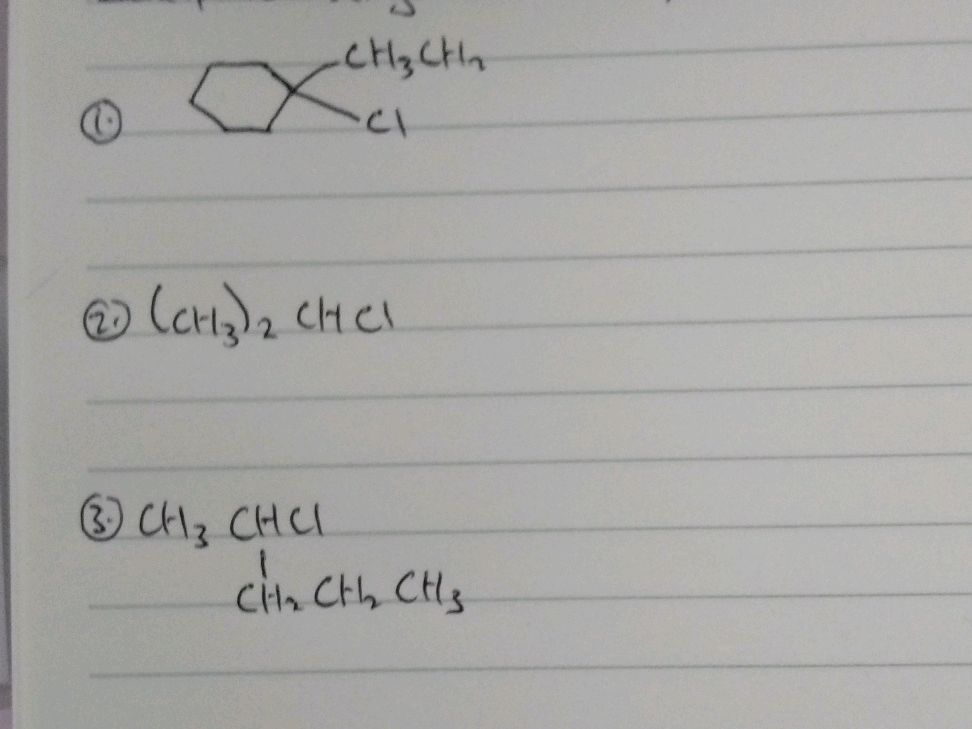 CH3CH2
① Cl
② (CH3)2 CHCl
③ CH3 CHCl
CH2 CH2 CH3